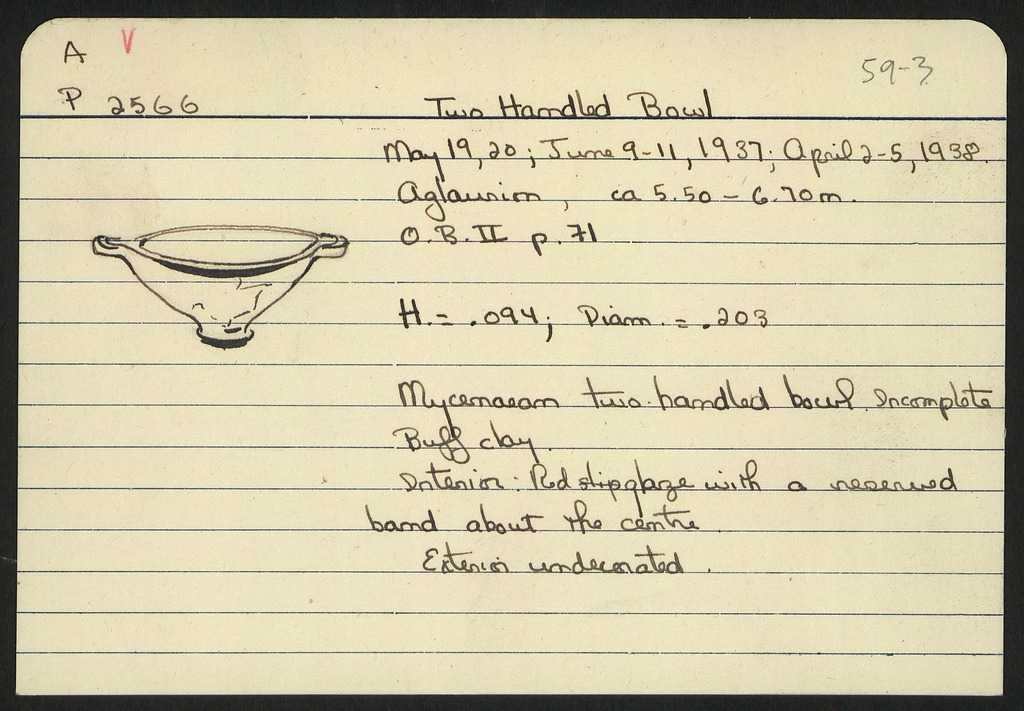 A V
59-3
P 2566 Two Handled Bowl
May 19, 20; June 9-11, 1937; April 2-5, 1938.
Aglaurion, ca 5.50 - 6.70 m.
O.B. II p. 71
H. = .094; Diam. = .203
Mycenaean two-handled bowl. Incomplete
Buff clay.
Interior: Red slipglaze with a reserved
band about the centre
Exterior undecorated.